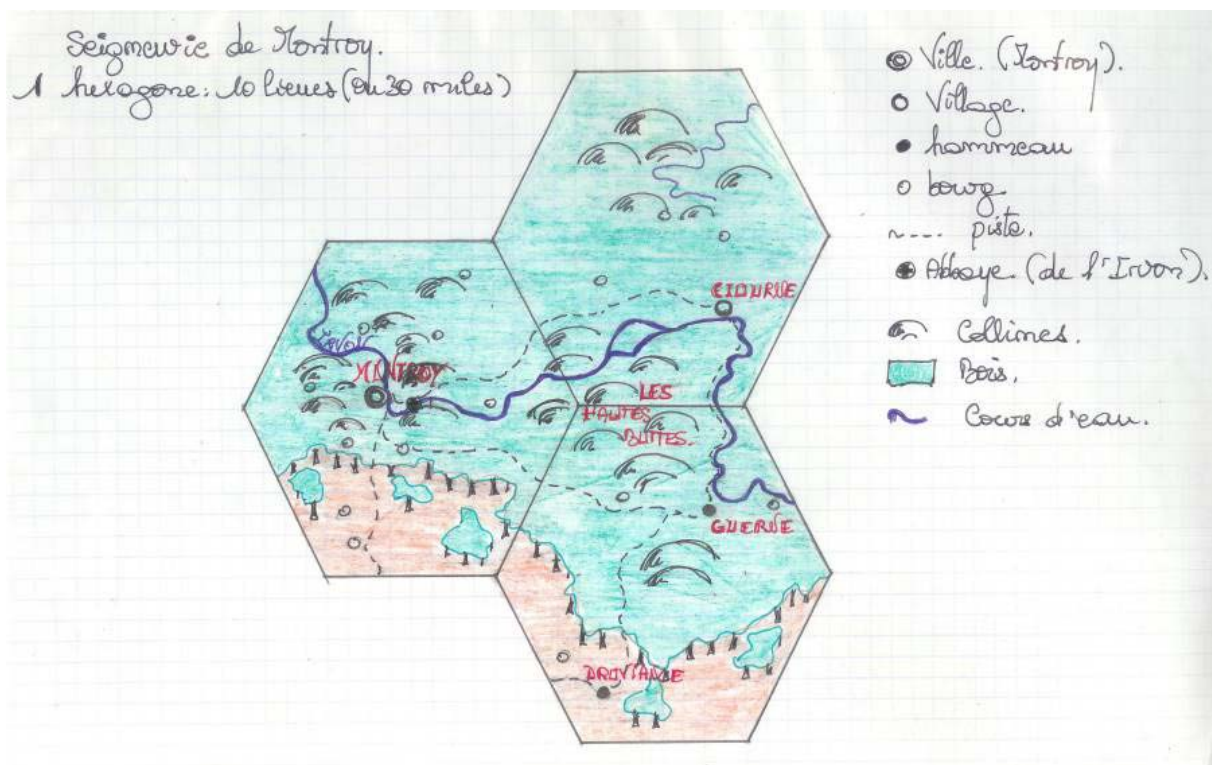 Seigneurie de Montroy.
1 hexagone: 10 lieues (ou 30 miles)
Ville. (Montroy).
Village.
hammeau
bourg
piste.
Abbaye (de l'Irvon).
Collines.
Bois.
Cours d'eau.
MONTROY
LES
HAUTES
BUTTES.
GUERNE